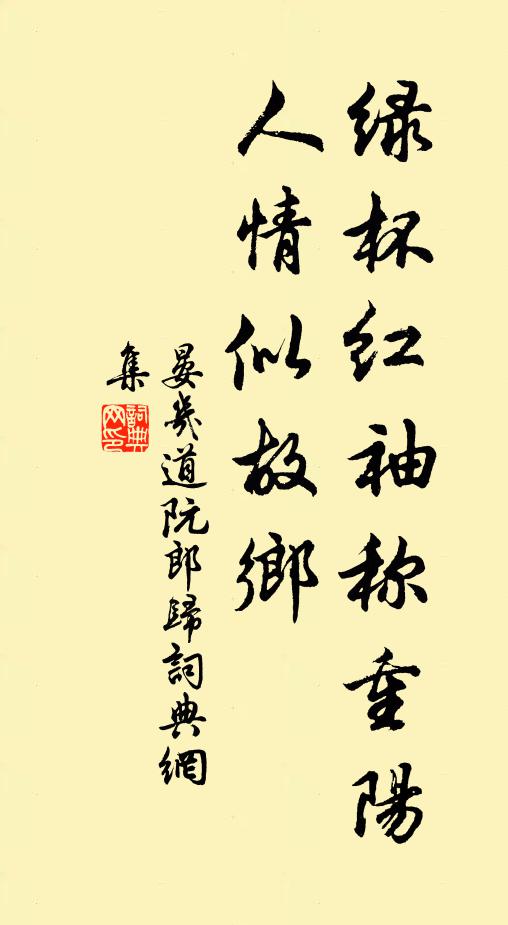 绿杯红袖称重陽
人情似故鄉
晏幾道阮郎歸詞典網
集
詞典
网印